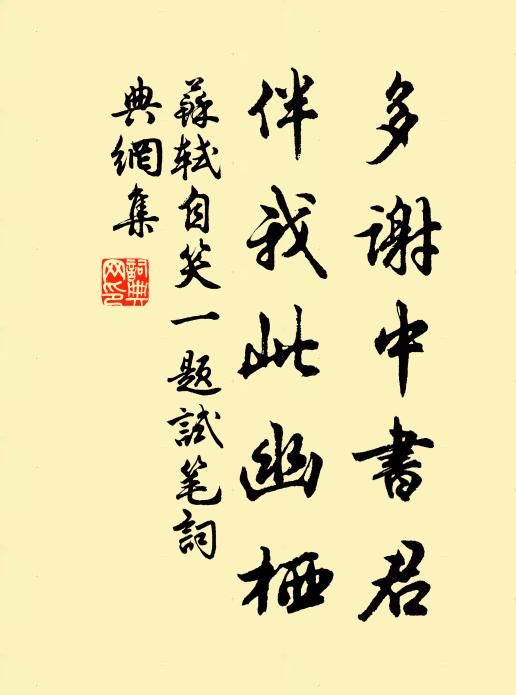 多谢中書君
伴我此幽栖
蘇軾自笑一題試笔詞
典網集
詞典
网印